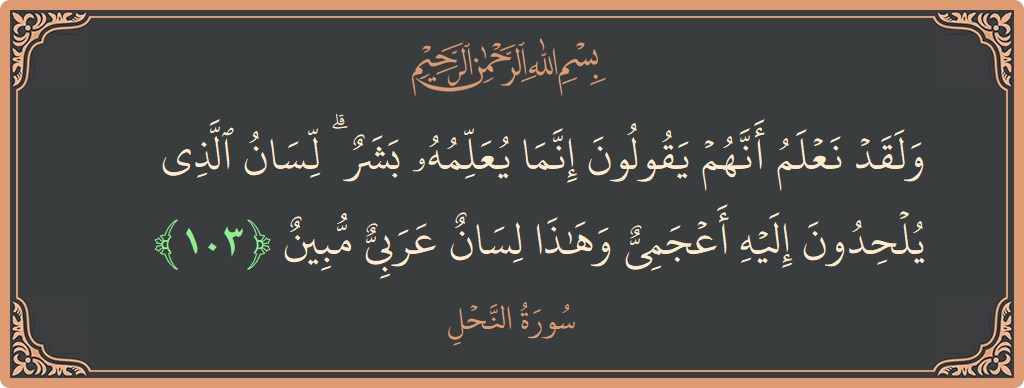 بِسْمِ اللَّهِ الرَّحْمَٰنِ الرَّحِيمِ
وَلَقَدۡ نَعۡلَمُ أَنَّهُمۡ يَقُولُونَ إِنَّمَا يُعَلِّمُهُۥ بَشَرٌۗ لِّسَانُ ٱلَّذِى
يُلۡحِدُونَ إِلَيۡهِ أَعۡجَمِىٌّ وَهَٰذَا لِسَانٌ عَرَبِىٌّ مُّبِينٌ ﴿١٠٣﴾
سُورَةُ النَّحْلِ